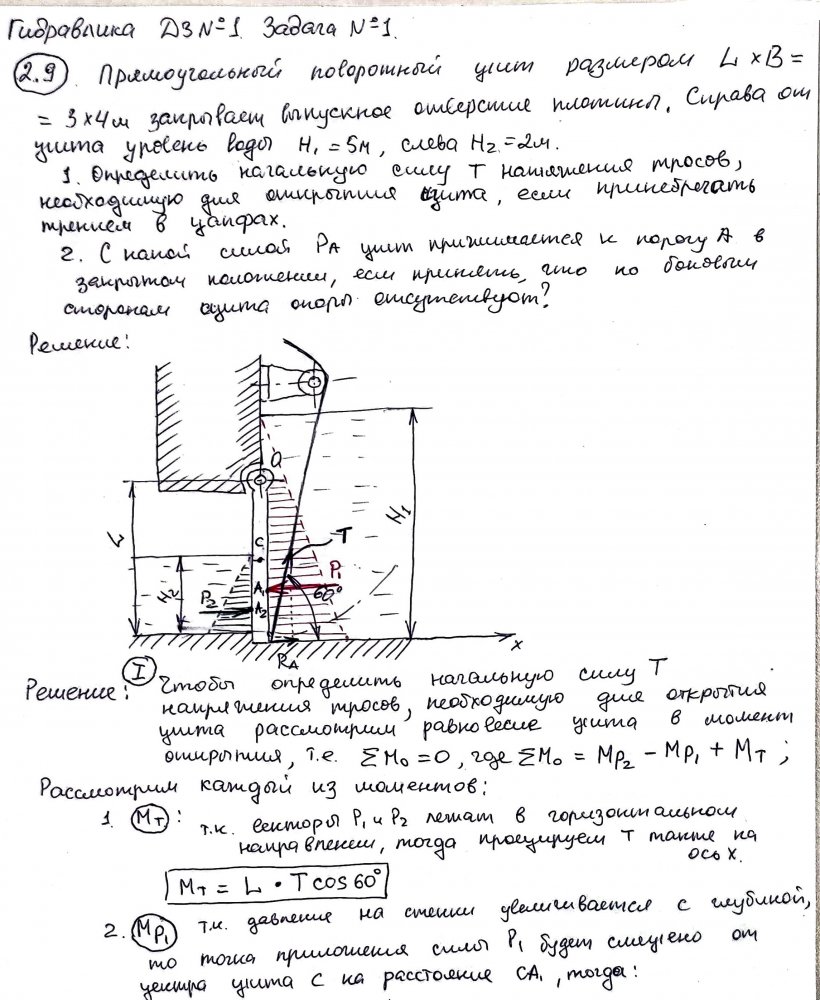 Гидравлика ДЗ №1. Задача №1.
2.9 Прямоугольный поворотный щит размером L×B=
= 3×4м закрывает выпускное отверстие плотины. Справа от
щита уровень воды H₁=5м, слева H₂=2м.
1. Определить начальную силу T натяжения тросов,
необходимую для открытия щита, если принебрегать
трением в цапфах.
2. С какой силой P_A щит прижимается к порогу A в
закрытом положении, если принять, что по боковым
сторонам щита опоры отсутствуют?
Решение:
O
L
H₁
C
T
H₂
P₂
A₁
P₁
A₂
60°
R_A
x
Решение: I Чтобы определить начальную силу T
напряжения тросов, необходимую для открытия
щита рассмотрим равновесие щита в момент
открытия, т.е. ΣM₀=0, где ΣM₀ = Mp₂ - Mp₁ + M_T;
Рассмотрим каждый из моментов:
1. M_T: т.к. векторы P₁ и P₂ лежат в горизонтальном
направлении, тогда проецируем T также на
ось X.
M_T = L · T cos 60°
2. Mp₁ т.к. давление на стенки увеличивается с глубиной,
то точка приложения силы P₁ будет смещено от
центра щита C на расстояние CA₁, тогда: